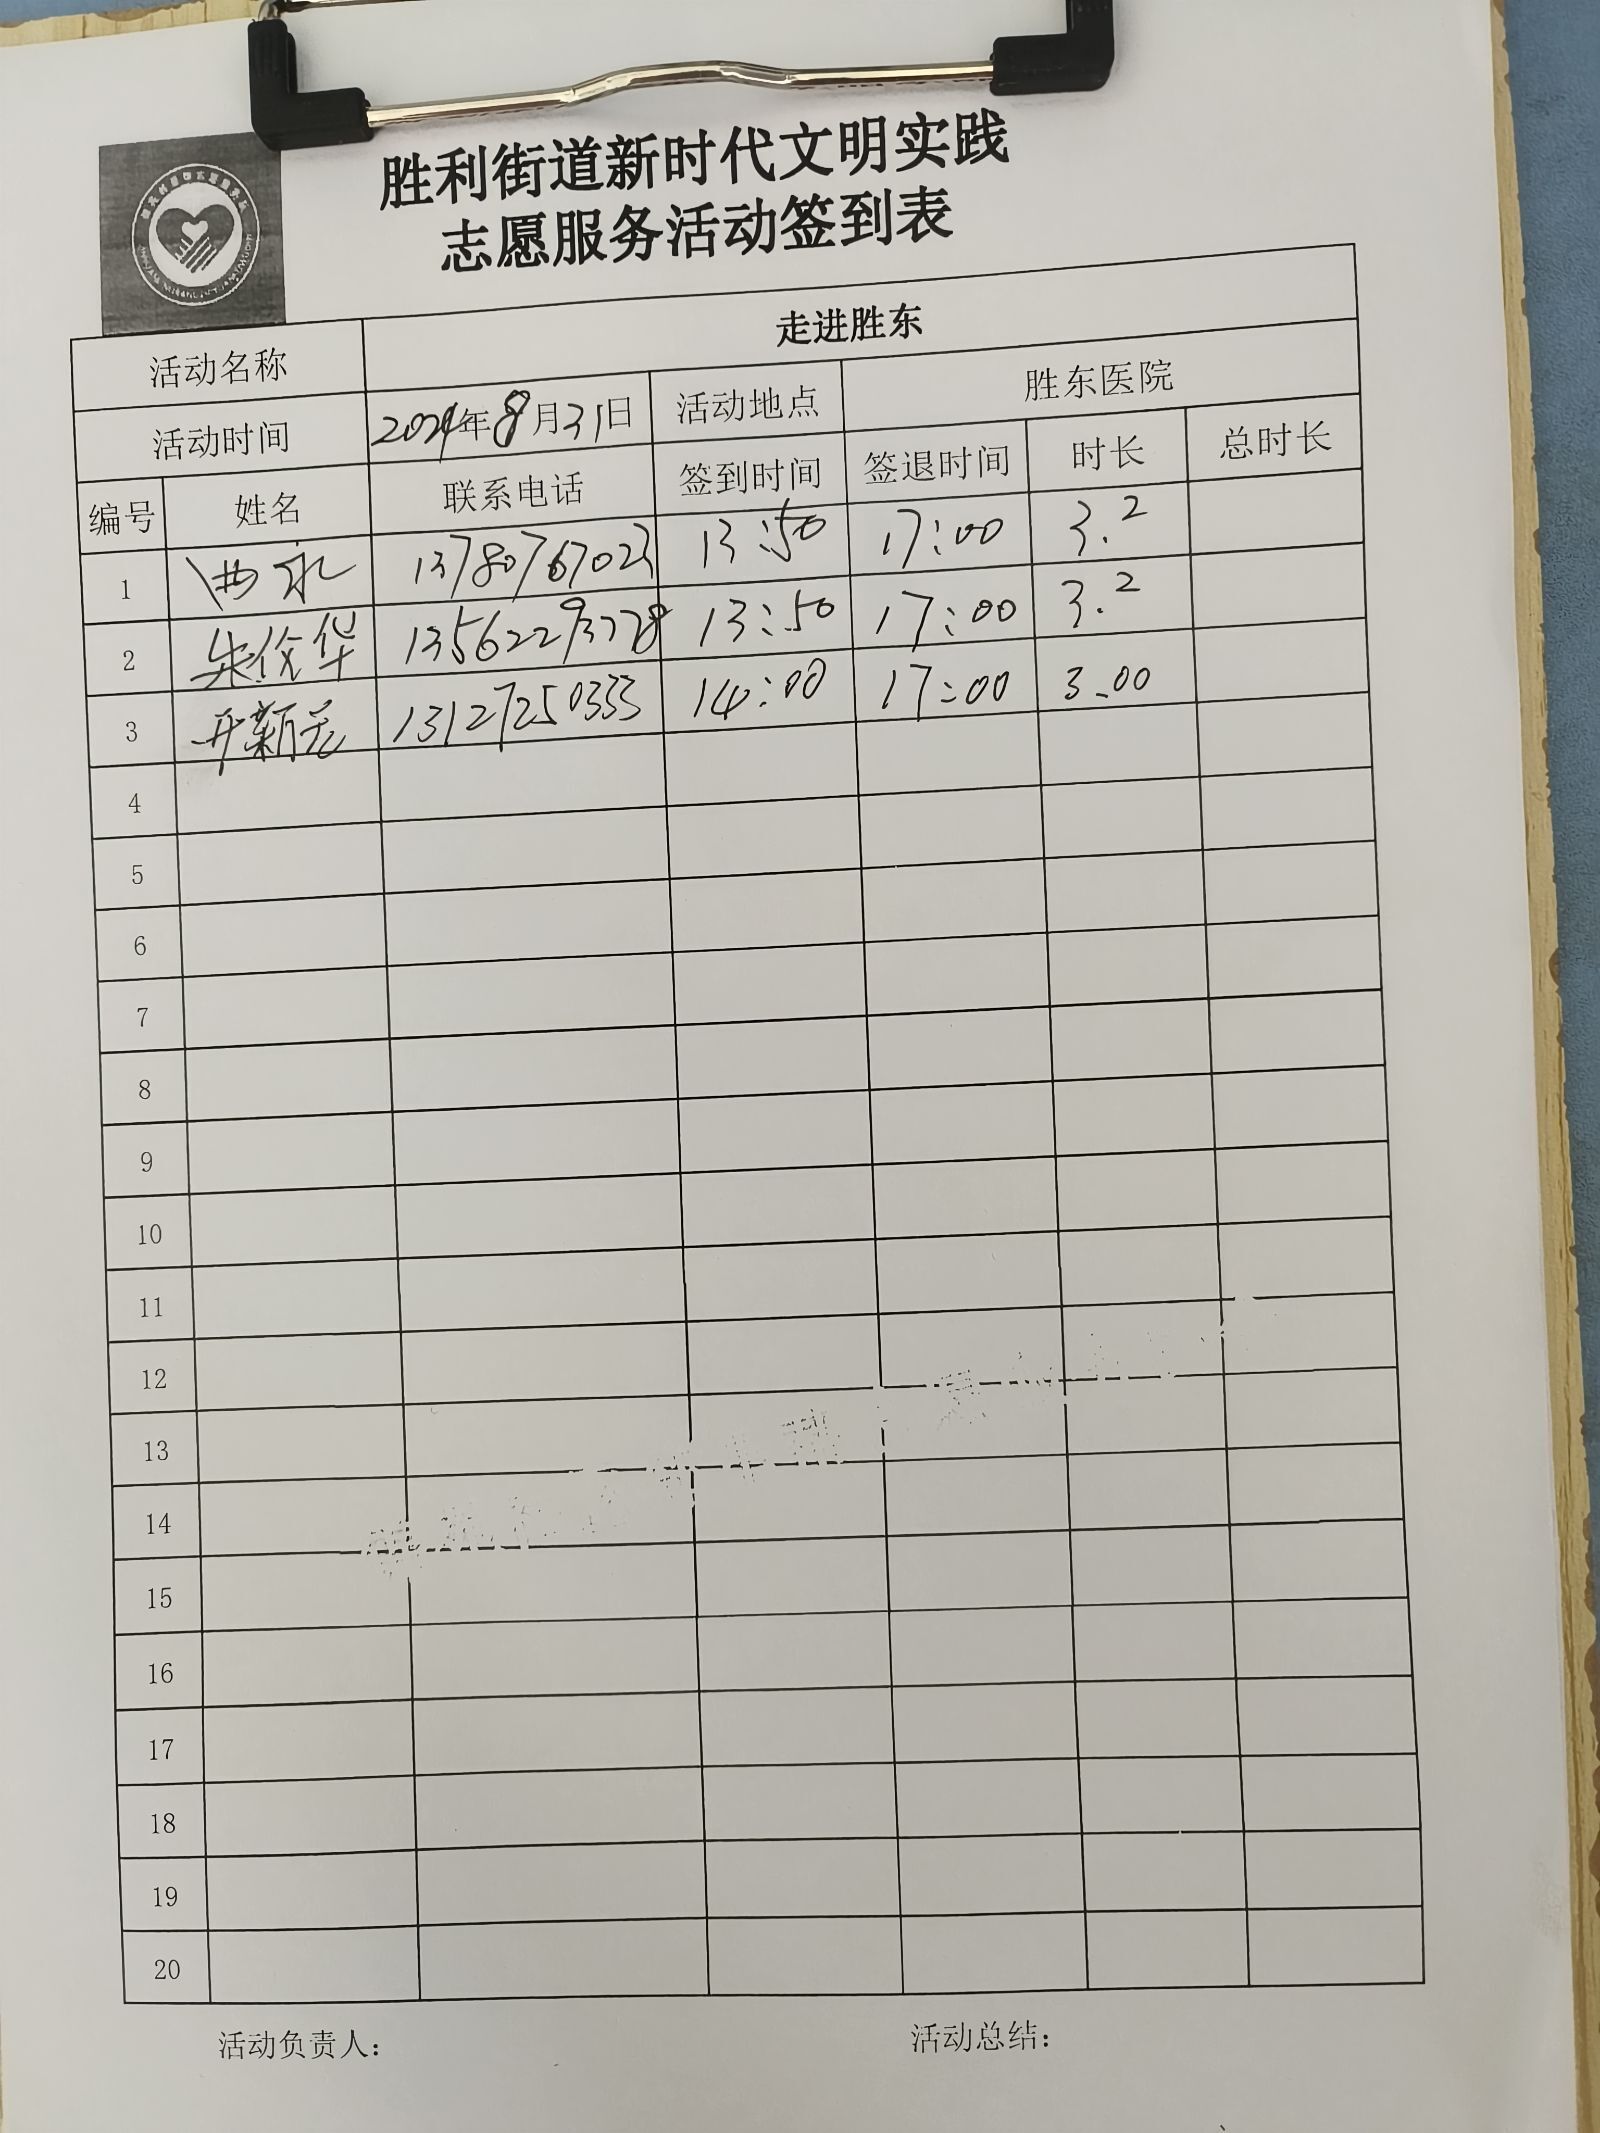 胜利街道新时代文明实践
志愿服务活动签到表
活动名称 走进胜东
活动时间 2024年8月31日 活动地点 胜东医院
编号 姓名 联系电话 签到时间 签退时间 时长 总时长
1 13780767023 13:50 17:00 3.2
2 华 13562293778 13:50 17:00 3.2
3 13127250333 14:00 17:00 3.00
4
5
6
7
8
9
10
11
12
13
14
15
16
17
18
19
20
活动负责人: 活动总结: